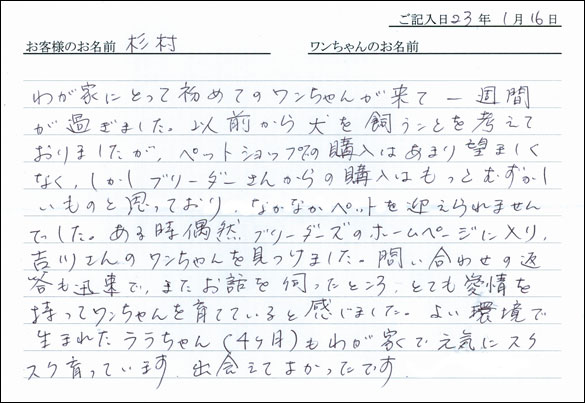 ご記入日23年 1月 16日
お客様のお名前 杉村 ワンちゃんのお名前
わが家にとって初めてのワンちゃんが来て一週間
が過ぎました。以前から犬を飼うことを考えて
おりましたが、ペットショップでの購入はあまり望ましく
なく、しかしブリーダーさんからの購入はもっとむずかし
いものと思っており なかなかペットを迎えられません
でした。ある時偶然ブリーダーズのホームページに入り、
吉川さんのワンちゃんを見つけました。問い合わせの返
答も迅速で、またお話を伺ったところ、とても愛情を
持ってワンちゃんを育てていると感じました。よい環境で
生まれたララちゃん(4ヶ月)もわが家で元気にスク
スク育っています。出会えてよかったです。